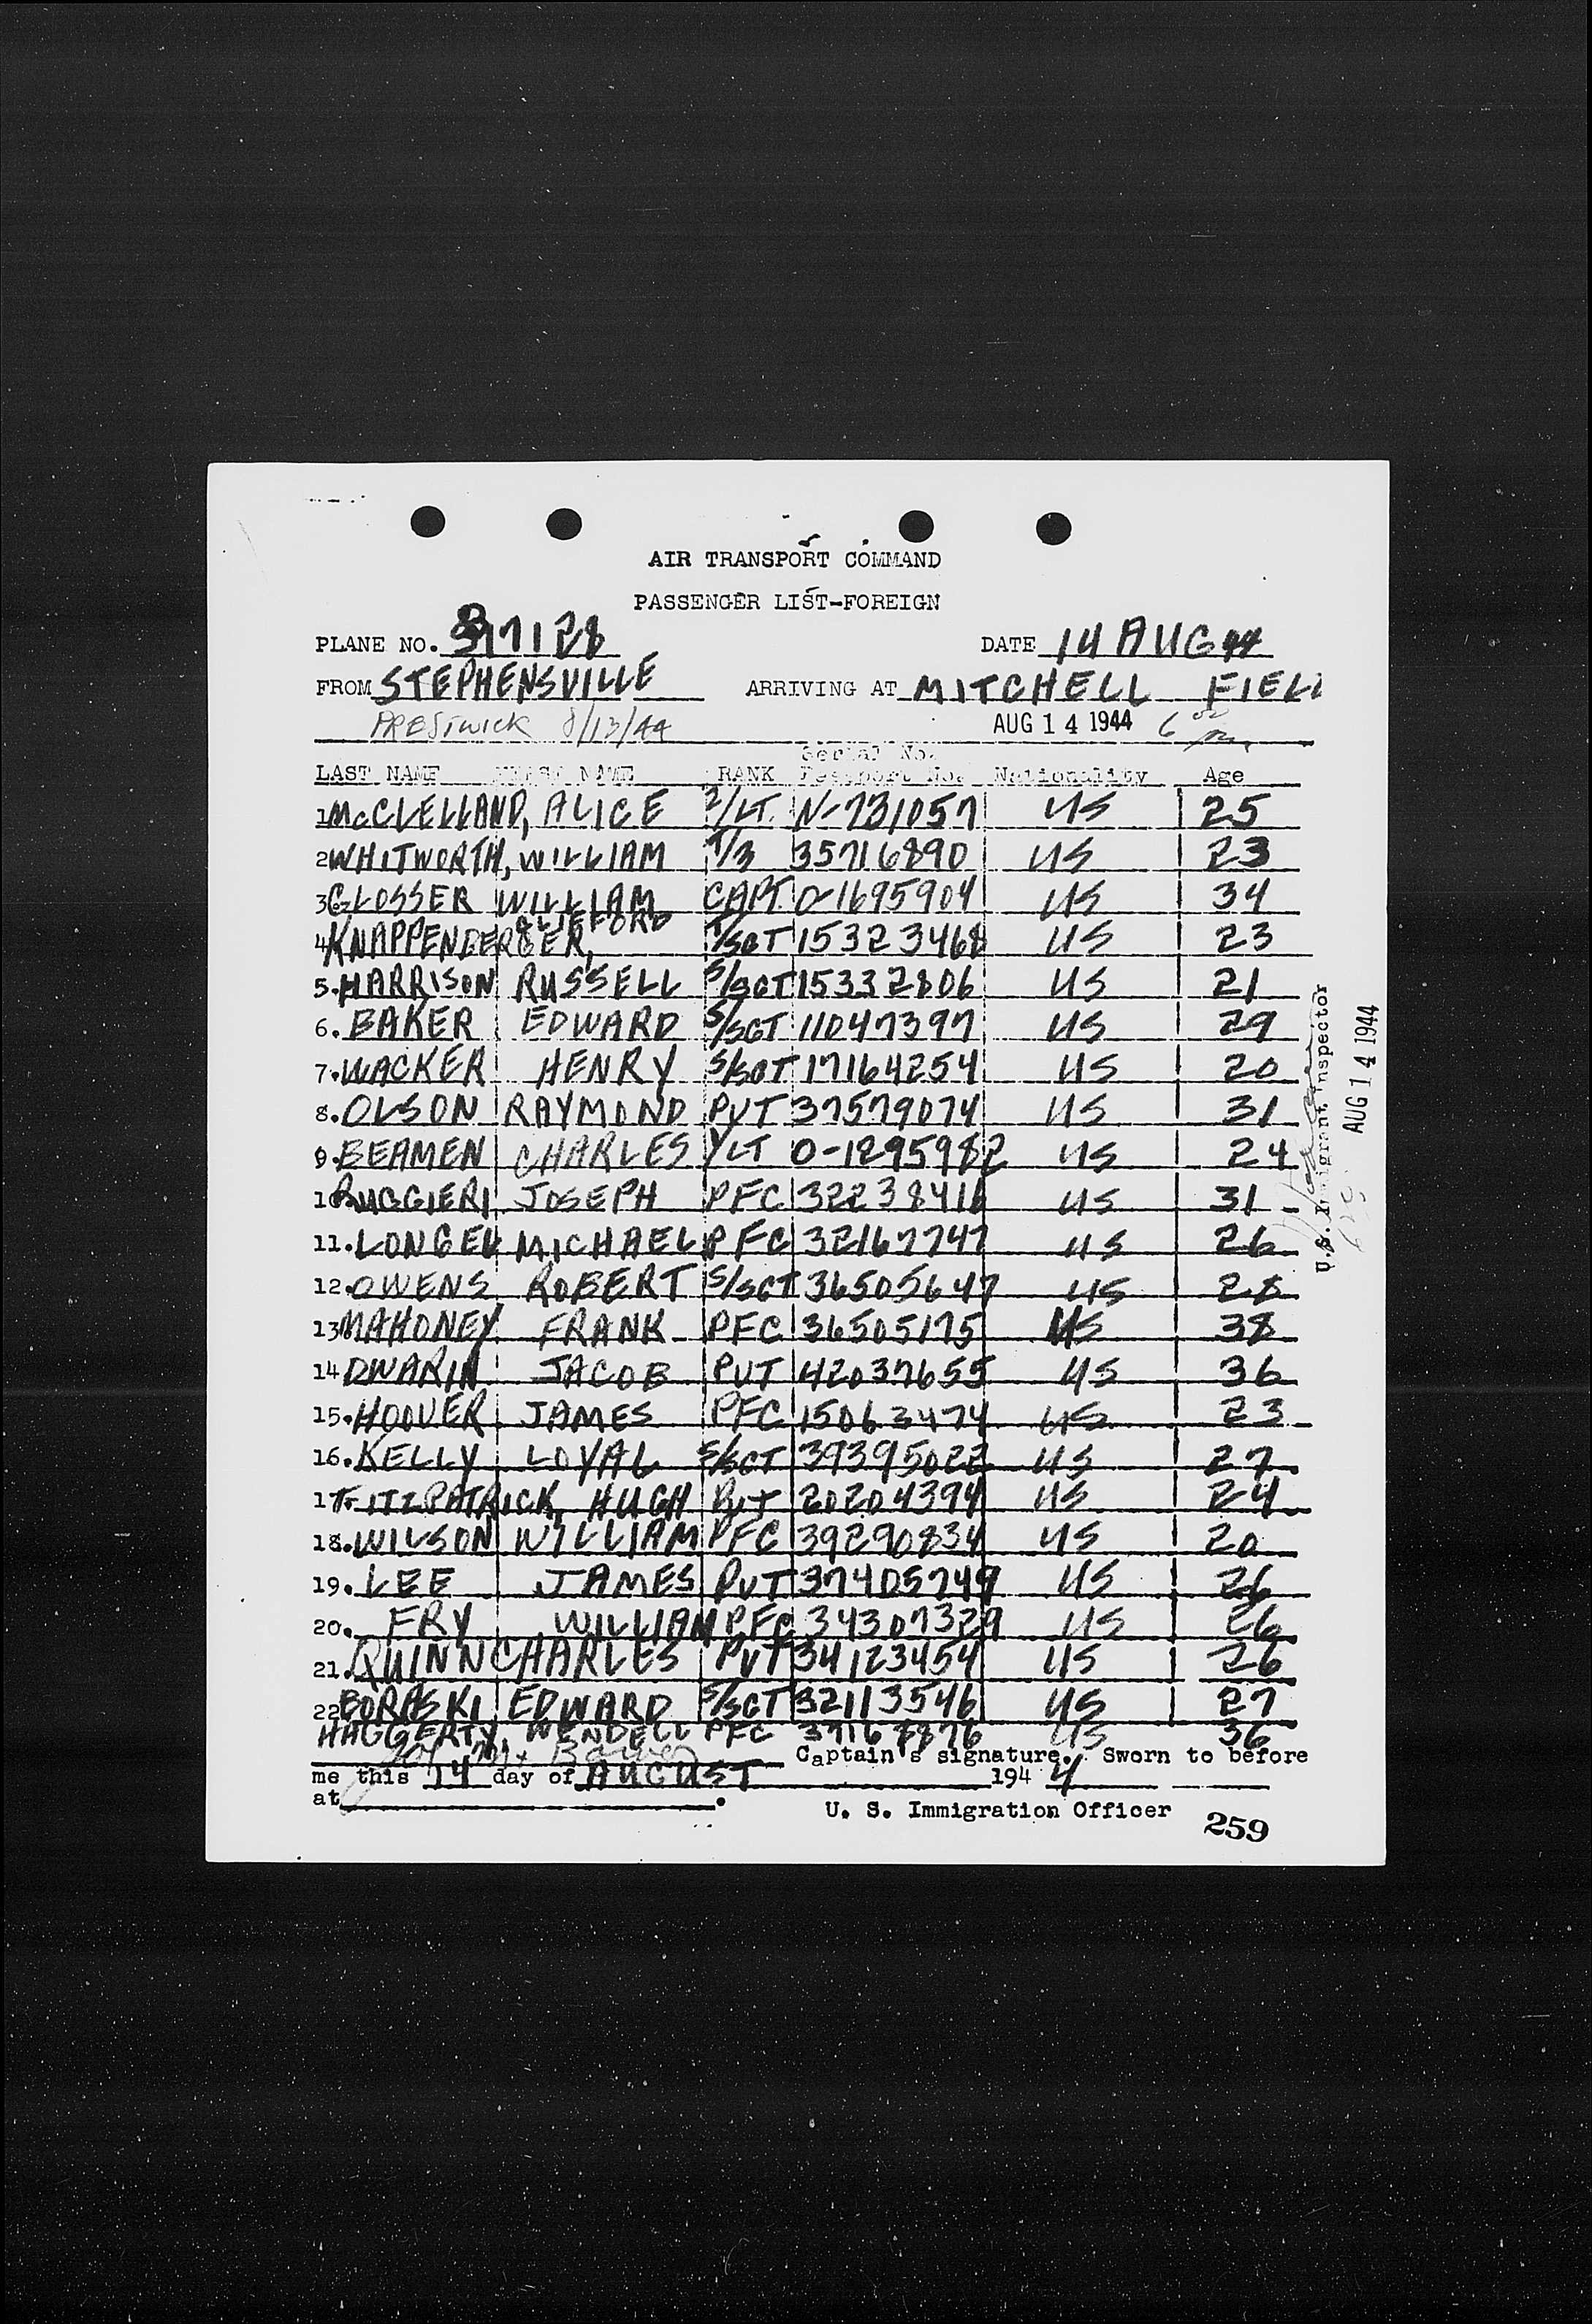 AIR TRANSPORT COMMAND
PASSENGER LIST-FOREIGN
PLANE NO. 317128 DATE 14 AUG 44
FROM STEPHENSVILLE ARRIVING AT MITCHELL FIELD
PRESTWICK 8/13/44 AUG 14 1944
Serial No.
LAST NAME FIRST NAME RANK Passport No. Nationality Age
1 McCLELLAND, ALICE 2/LT. N-731057 US 25
2 WHITWORTH, WILLIAM T/3 35716890 US 23
3. GLOSSER WILLIAM CAPT. O-1695904 US 34
4 KNAPPENBERGER, CLIFFORD T/SGT 15323468 US 23
5. HARRISON RUSSELL S/SGT 15332806 US 21
6. BAKER EDWARD S/SGT 11047397 US 29
7. WACKER HENRY S/SGT 17164254 US 20
8. OLSON RAYMOND PVT 37579074 US 31
9. BEAMEN CHARLES 1/LT O-1295982 US 24
10 RUGGIERI JOSEPH PFC 32238416 US 31
11. LONGEU MICHAEL PFC 32167747 US 26
12. OWENS ROBERT S/SGT 36505647 US 28
13 MAHONEY FRANK PFC 36505175 US 38
14 DWARIN JACOB PVT 42037655 US 36
15. HOOVER JAMES PFC 15063474 US 23
16. KELLY LOYAL S/SGT 39395022 US 27
17 FITZPATRICK, HUGH PVT 20204394 US 24
18. WILSON WILLIAM PFC 39290834 US 20
19. LEE JAMES PVT 37405749 US 26
20. FRY WILLIAM PFC 34307329 US 26
21. QUINN CHARLES PVT 34123454 US 26
22 BORASKI EDWARD S/SGT 32113546 US 27
HAGGERTY, WENDELL PFC 37168876 US 36
Captain's signature. Sworn to before
me this 14 day of AUGUST 194 4
at .
U. S. Immigration Officer 259
U.S. Immigrant Inspector
AUG 14 1944